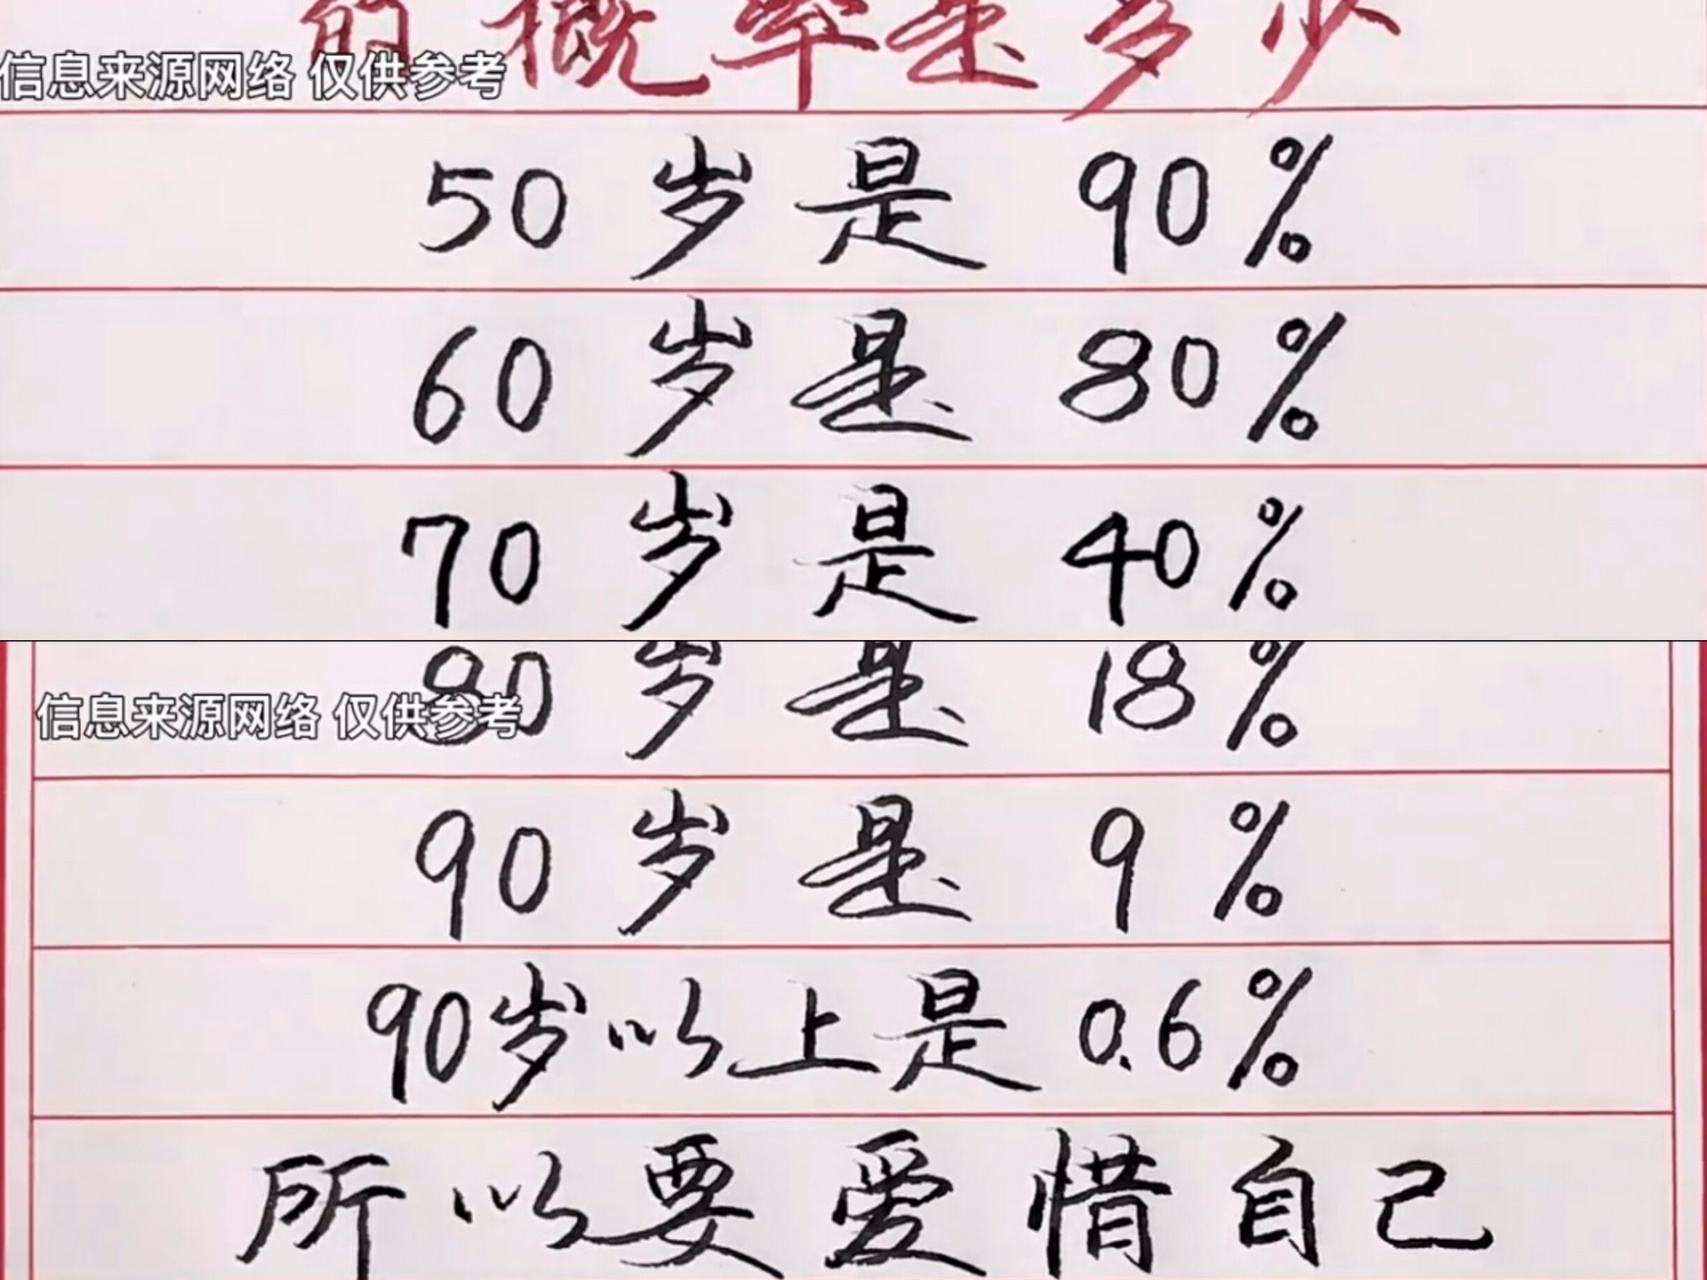 的概率是多少
信息来源网络 仅供参考
50岁是90%
60岁是80%
70岁是40%
80岁是18%
信息来源网络 仅供参考
90岁是9%
90岁以上是0.6%
所以要爱惜自己